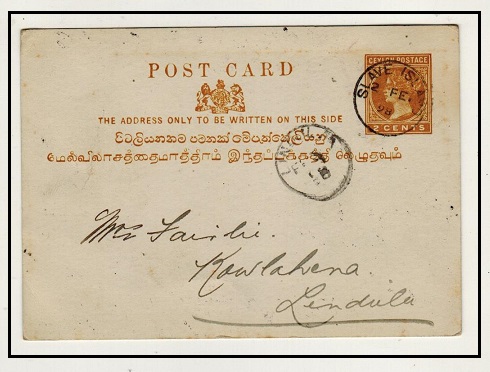 POST CARD
CEYLON POSTAGE
SLAVE ISL
2 FE
98
2 CENTS
THE ADDRESS ONLY TO BE WRITTEN ON THIS SIDE
மேல்விலாசத்தைமாத்திரம் இந்தப்பக்கத்தி லெழுதவும்
Mrs Fairlie.
Kowlahena.
Lindula